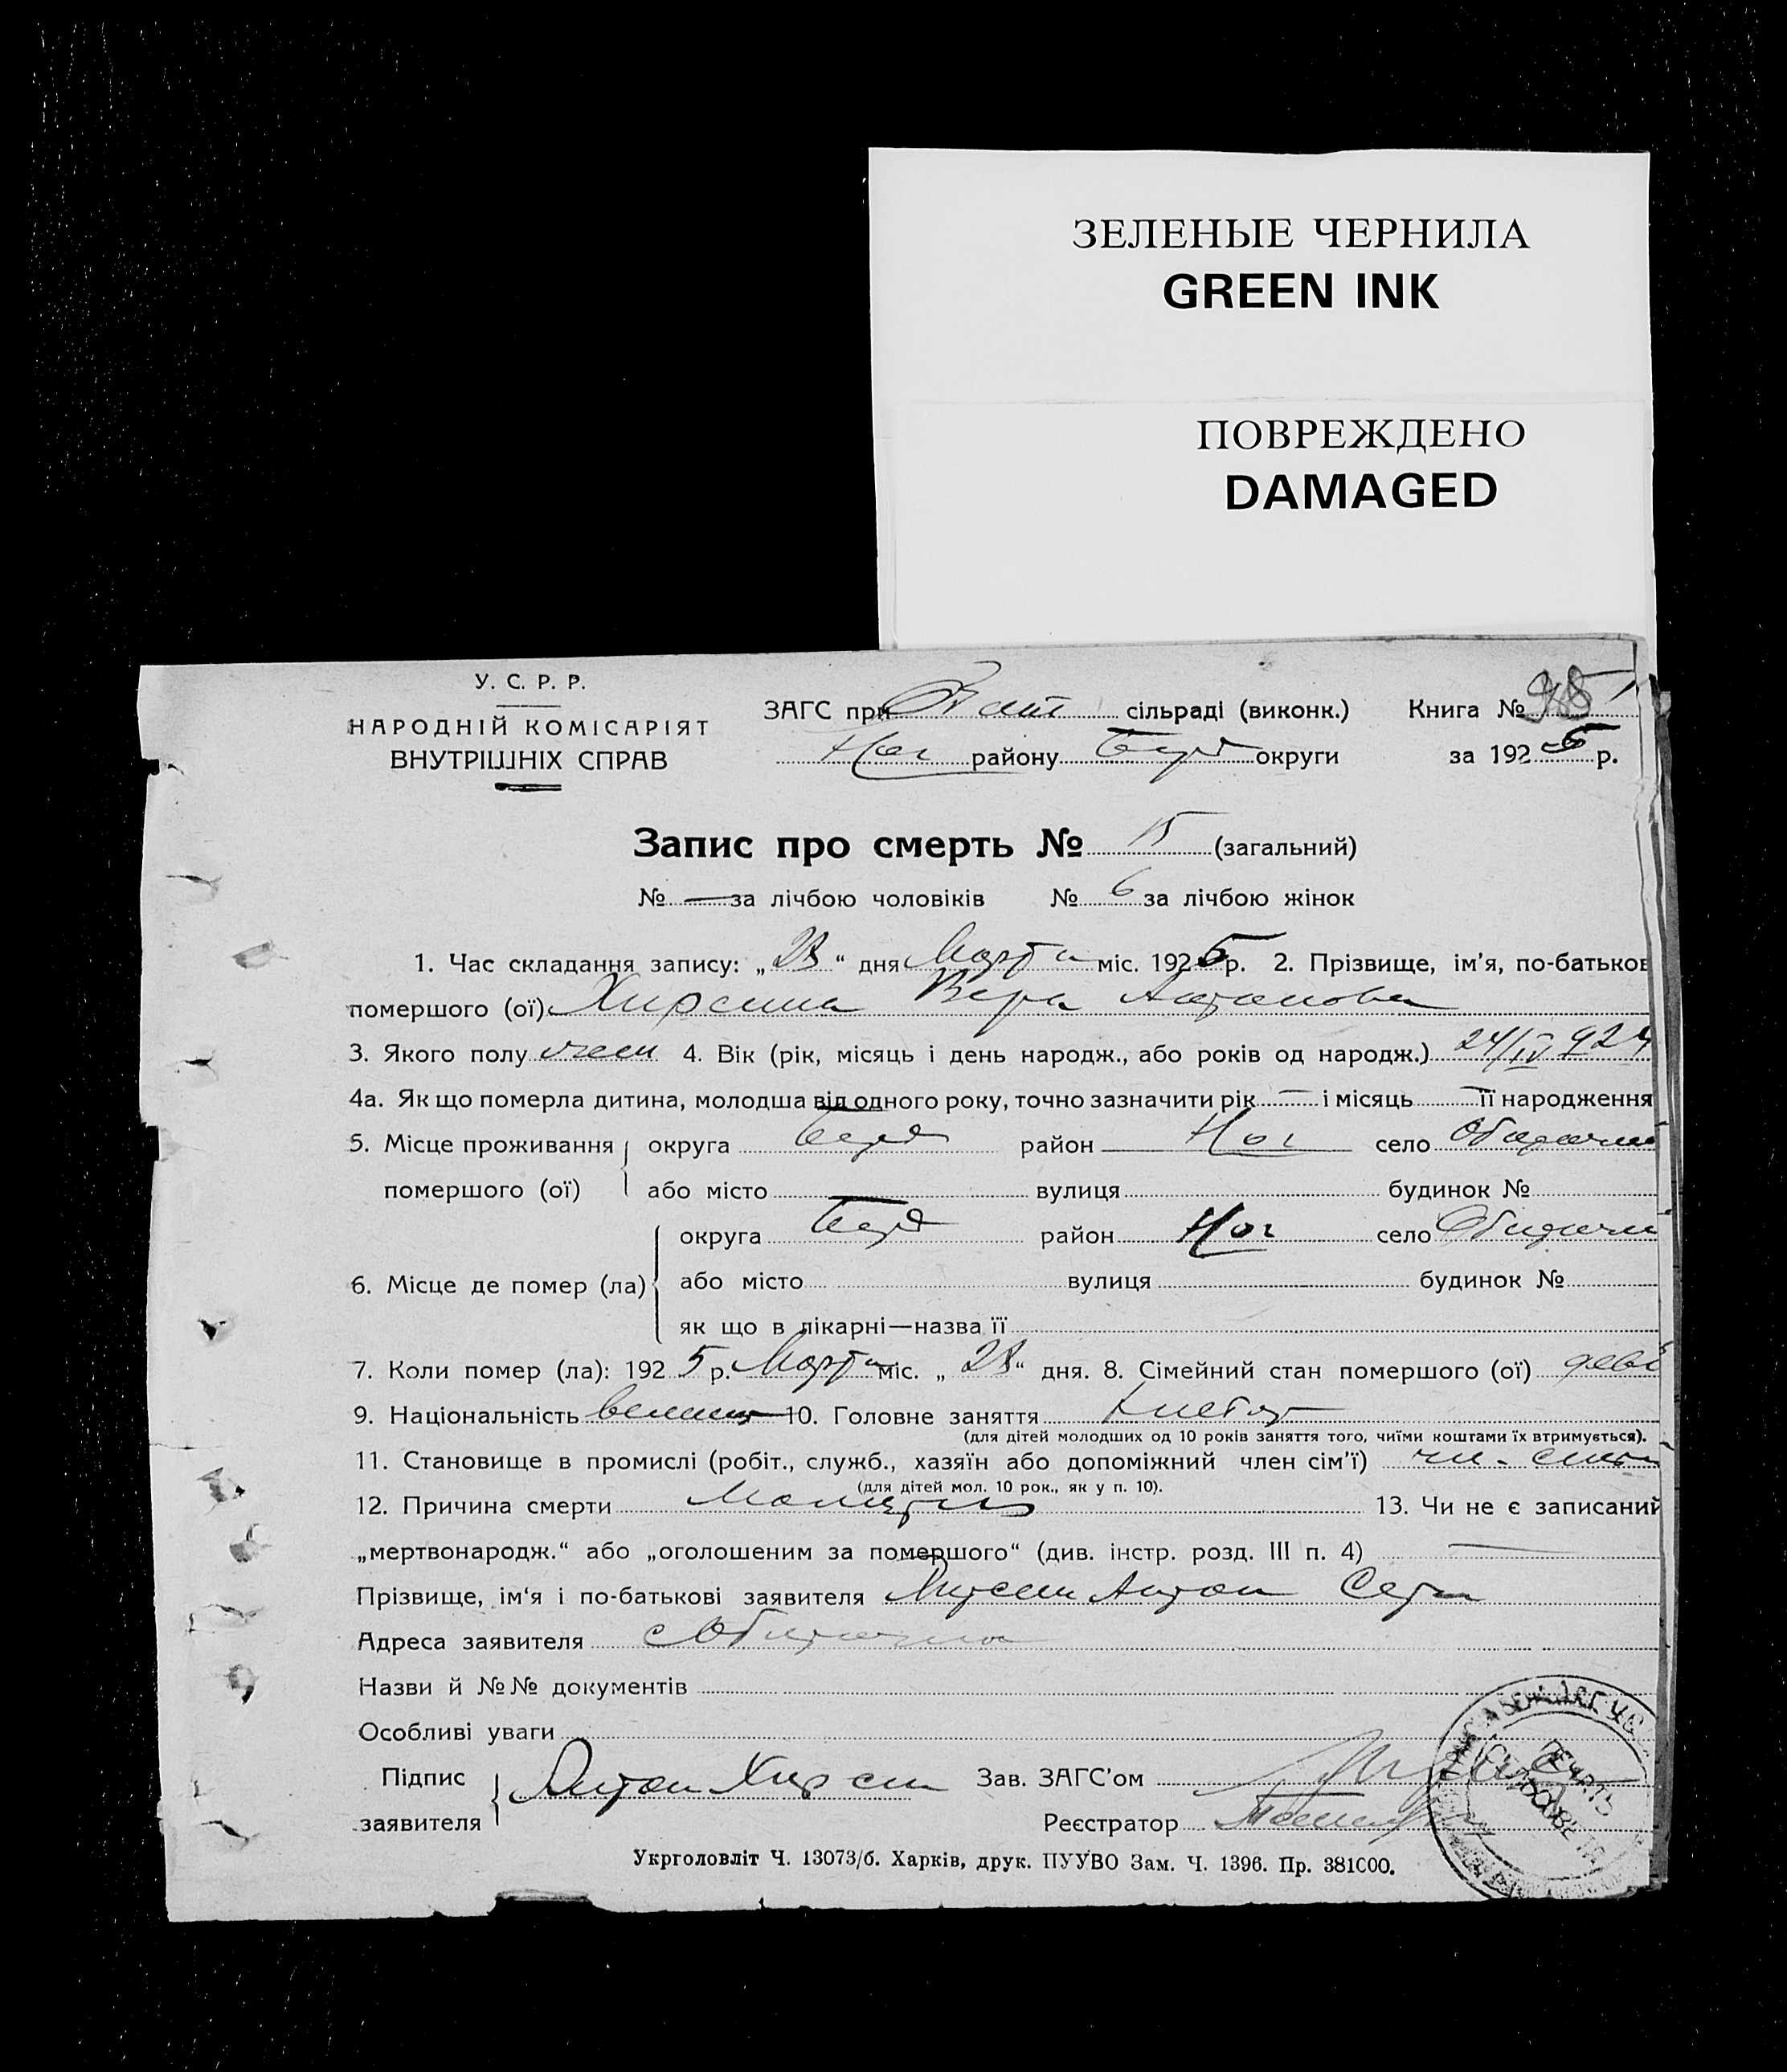 ЗЕЛЕНЫЕ ЧЕРНИЛА
GREEN INK
ПОВРЕЖДЕНО
DAMAGED
У. С. Р. Р.
НАРОДНІЙ КОМІСАРІЯТ
ВНУТРІШНІХ СПРАВ
ЗАГС при сільраді (виконк.) Книга №
Ног району Берд округи за 1925 р.
Запис про смерть № 15 (загальний)
№ — за лічбою чоловіків № 6 за лічбою жінок
1. Час складання запису: „28“ дня Марта міс. 1925 р. 2. Прізвище, ім'я, по-батькові
помершого (ої) Хирсина Вера Антонова
3. Якого полу жен 4. Вік (рік, місяць і день народж., або років од народж.) 24/IV 924
4а. Як що померла дитина, молодша від одного року, точно зазначити рік — і місяць — її народження
5. Місце проживання округа Берд район Ног село Обиточн
помершого (ої) або місто вулиця будинок №
округа Берд район Ног село Обиточн
6. Місце де помер (ла) або місто вулиця будинок №
як що в лікарні—назва її
7. Коли помер (ла): 1925 р. Марта міс. „28“ дня. 8. Сімейний стан помершого (ої) деви
9. Національність 10. Головне заняття Хлебор
(для дітей молодших од 10 років заняття того, чиїми коштами їх втримується).
11. Становище в промислі (робіт., служб., хазяїн або допоміжний член сім'ї) чл. семьи
(для дітей мол. 10 рок., як у п. 10).
12. Причина смерти 13. Чи не є записаний
„мертвонародж.“ або „оголошеним за помершого“ (див. інстр. розд. III п. 4) —
Прізвище, ім'я і по-батькові заявителя Антон
Адреса заявителя с Обиточна
Назви й №№ документів
Особливі уваги
Підпис Антон Хирсин Зав. ЗАГС'ом
заявителя Реєстратор
Укрголовліт Ч. 13073/б. Харків, друк. ПУУВО Зам. Ч. 1396. Пр. 381000.